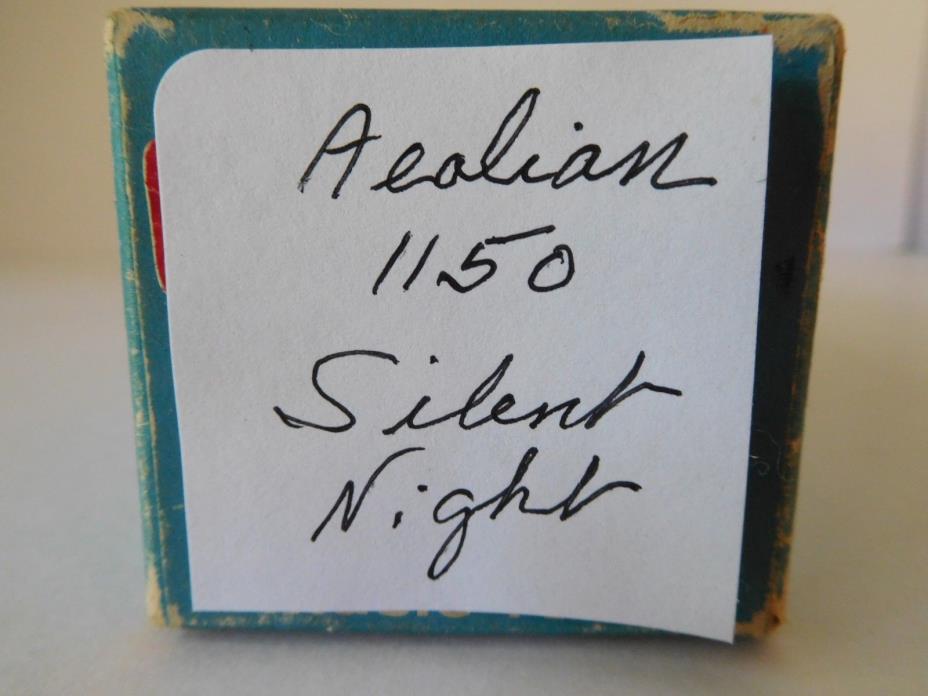 Aeolian
1150
Silent
Night